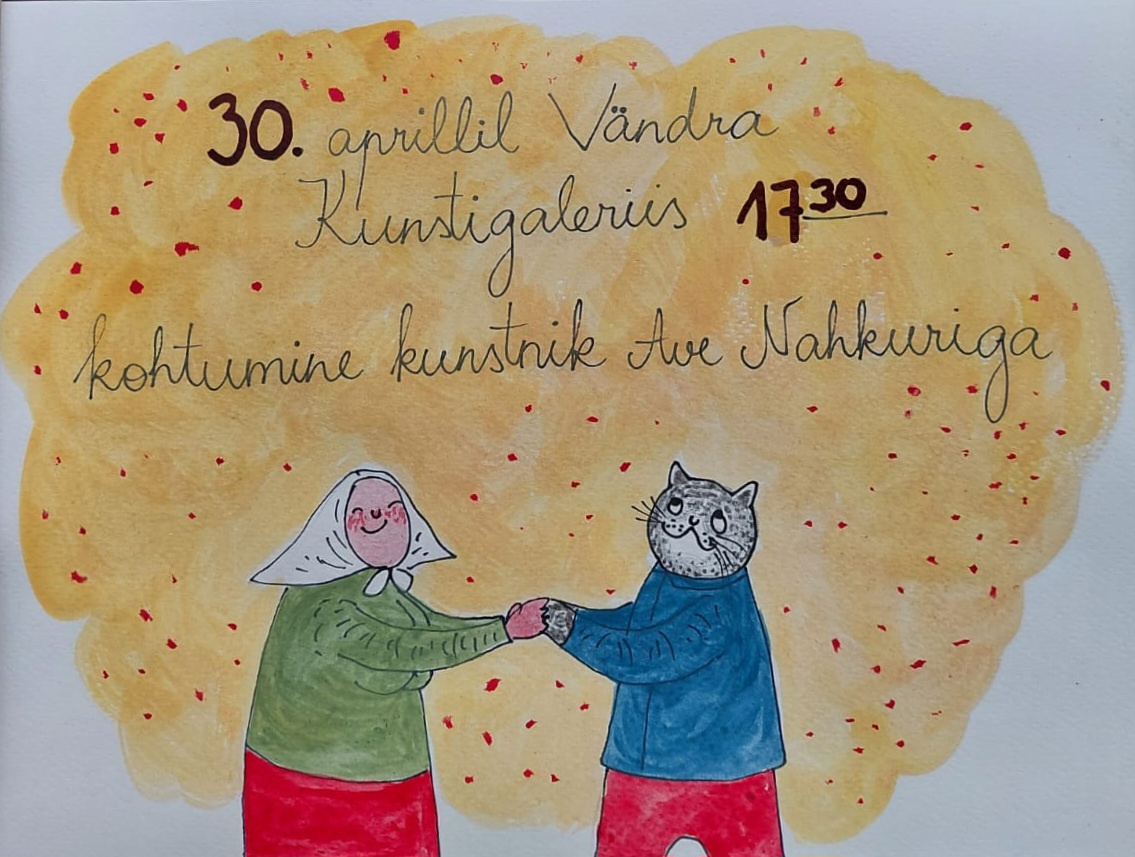 30. aprillil Vändra
Kunstigaleriis 17³⁰
kohtumine kunstnik Ave Nahkuriga